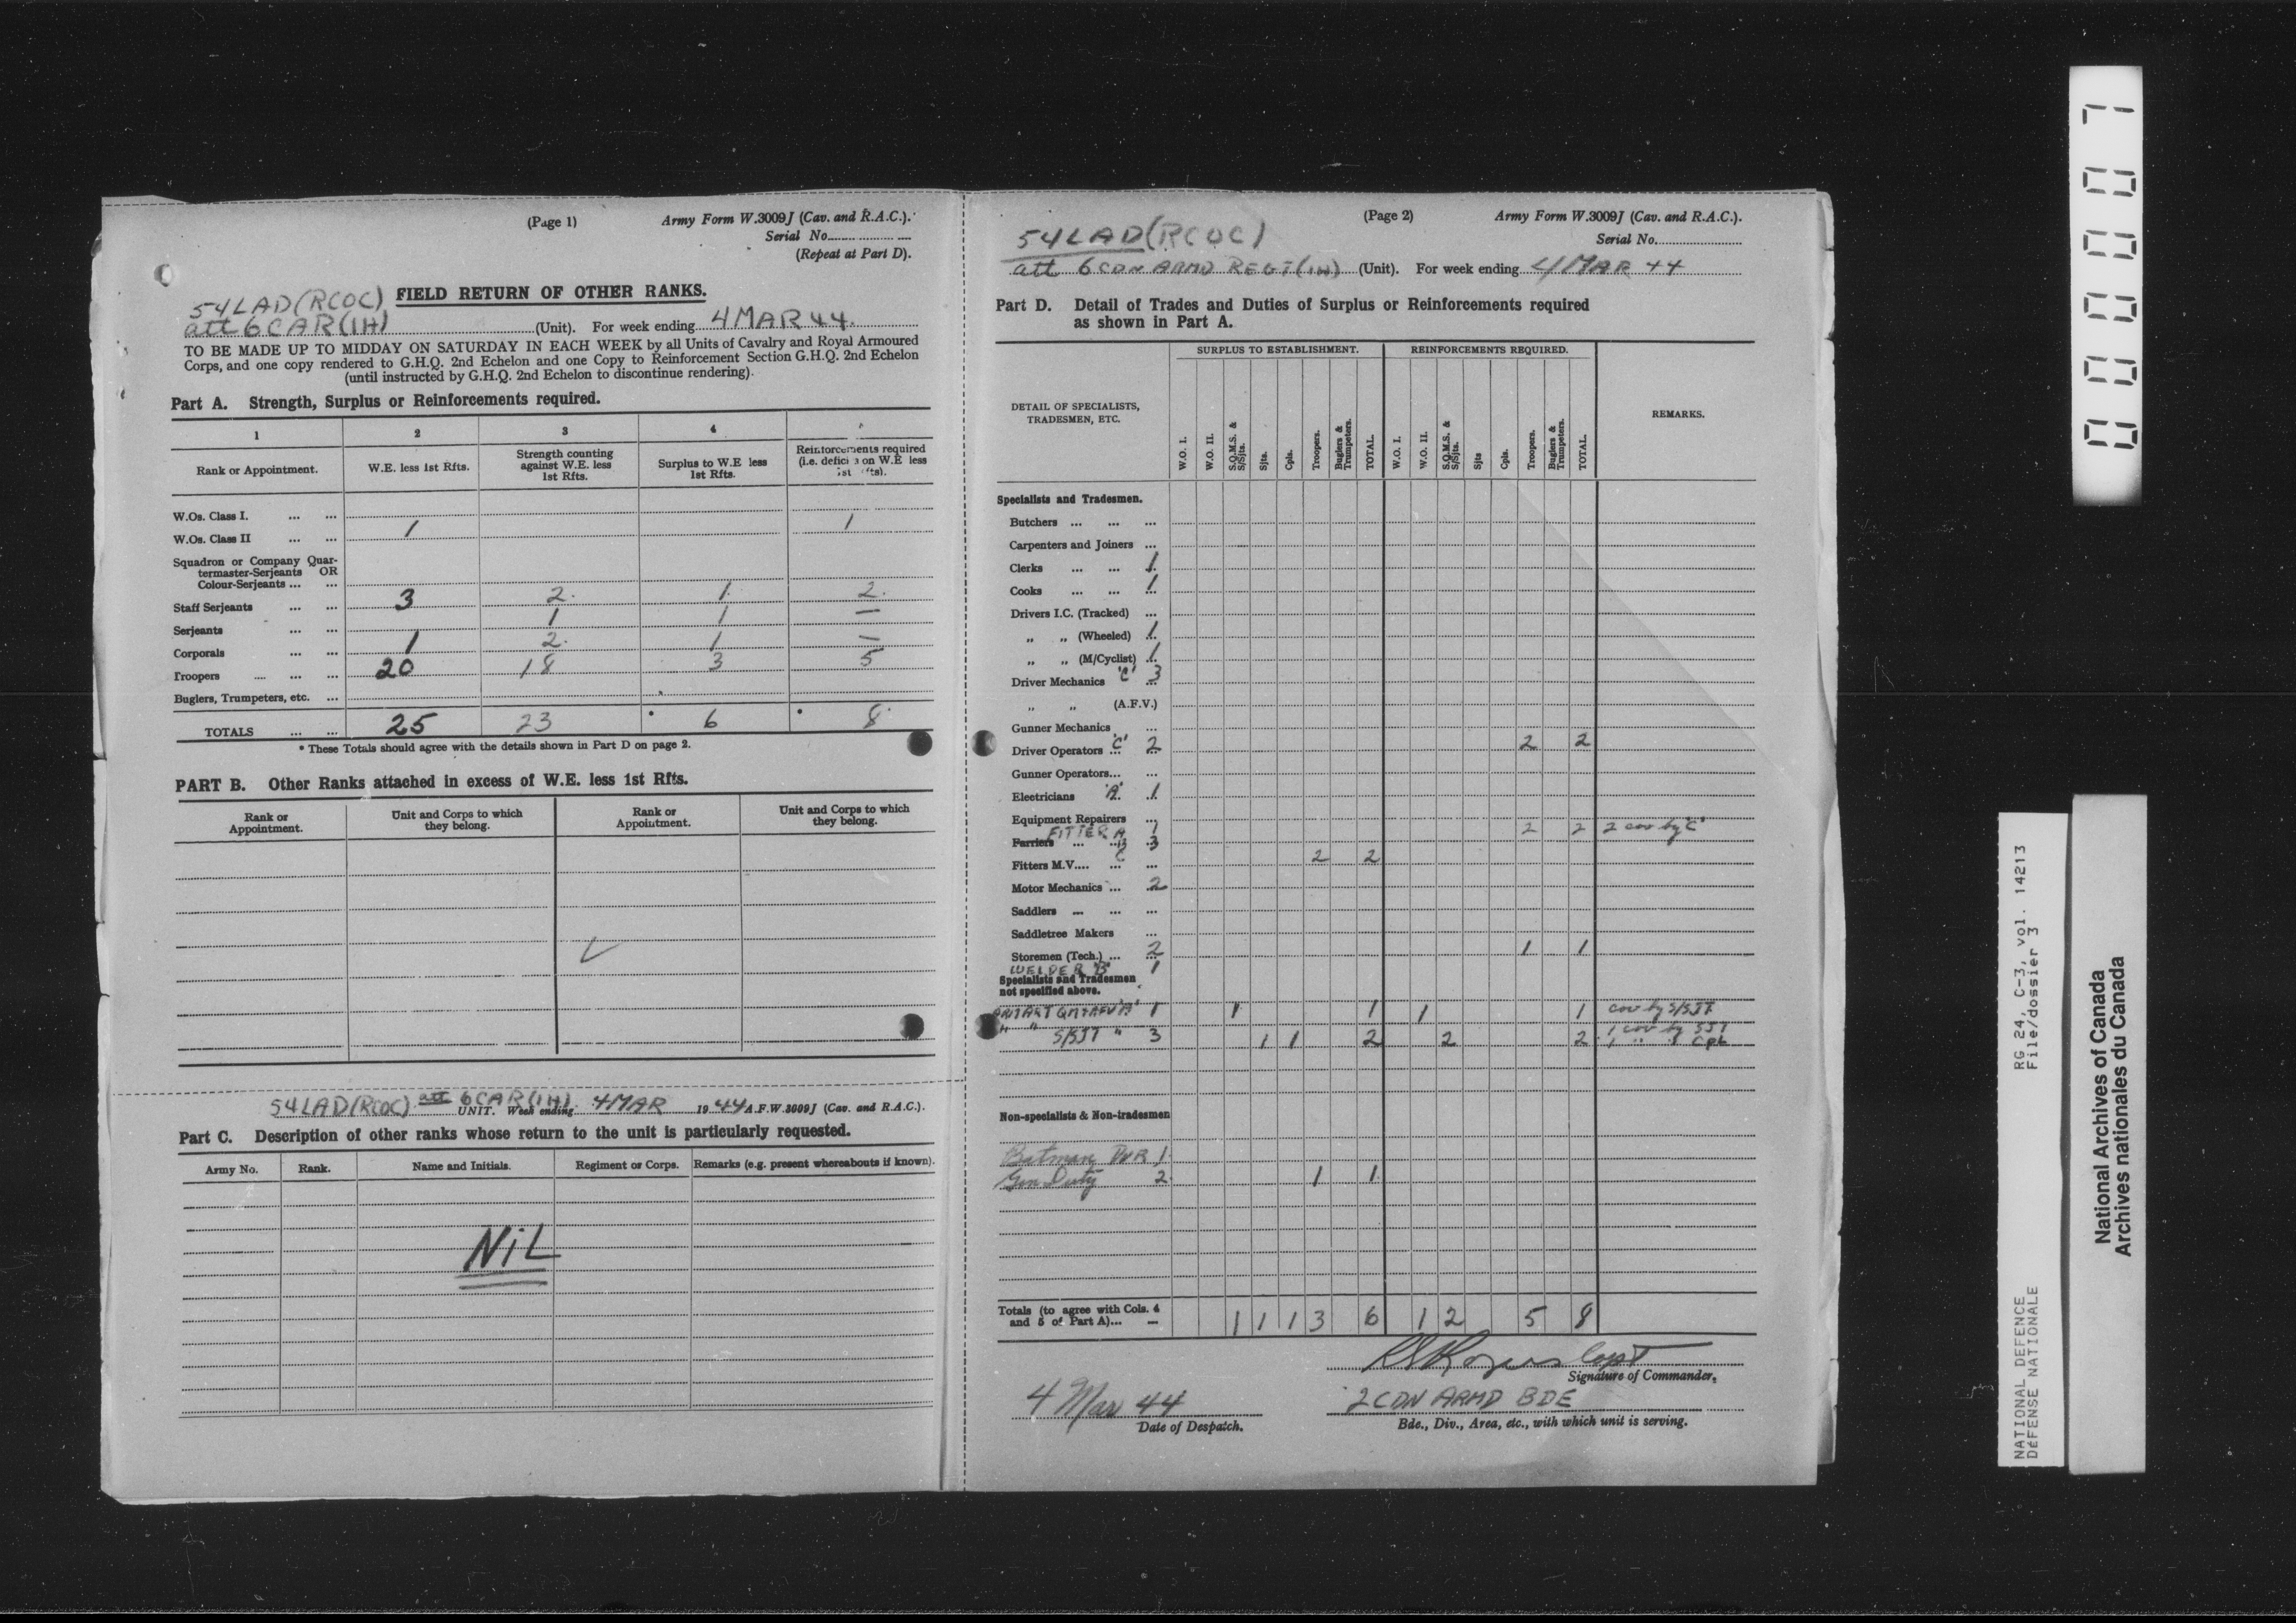 (Page 1) Army Form W.3009J (Cav. and R.A.C.).
Serial No.
(Repeat at Part D).
54 LAD (RCOC) FIELD RETURN OF OTHER RANKS.
att 6 CAR (1H) (Unit). For week ending 4 MAR 44.
TO BE MADE UP TO MIDDAY ON SATURDAY IN EACH WEEK by all Units of Cavalry and Royal Armoured
Corps, and one copy rendered to G.H.Q. 2nd Echelon and one Copy to Reinforcement Section G.H.Q. 2nd Echelon
(until instructed by G.H.Q. 2nd Echelon to discontinue rendering).
Part A. Strength, Surplus or Reinforcements required.
1 2 3 4
Rank or Appointment. W.E. less 1st Rfts. Strength counting against W.E. less 1st Rfts. Surplus to W.E less 1st Rfts. Reinforcements required (i.e. on W.E less 1st
W.Os. Class I. ... ...
W.Os. Class II ... ... 1 1
Squadron or Company Quar-
termaster-Serjeants OR
Colour-Serjeants ... ...
Staff Serjeants ... ... 3 2 1 2
Serjeants ... ... 1 1 —
Corporals ... ... 1 2 1 —
Troopers ... ... ... 20 18 3 5
Buglers, Trumpeters, etc. ...
TOTALS ... ... 25 23 • 6 • 8
* These Totals should agree with the details shown in Part D on page 2.
PART B. Other Ranks attached in excess of W.E. less 1st Rfts.
Rank or Appointment. Unit and Corps to which they belong. Rank or Appointment. Unit and Corps to which they belong.
54 LAD (RCOC) att 6 CAR (1H)
UNIT. Week ending 4 MAR 1944 A.F.W.3009J (Cav. and R.A.C.).
Part C. Description of other ranks whose return to the unit is particularly requested.
Army No. Rank. Name and Initials. Regiment or Corps. Remarks (e.g. present whereabouts if known).
NiL
(Page 2) Army Form W.3009J (Cav. and R.A.C.).
54 LAD (RCOC)
Serial No.
att 6 CDN ARMD REGT (1H) (Unit). For week ending 4 MAR 44
Part D. Detail of Trades and Duties of Surplus or Reinforcements required
as shown in Part A.
SURPLUS TO ESTABLISHMENT. REINFORCEMENTS REQUIRED.
DETAIL OF SPECIALISTS, TRADESMEN, ETC. W.O. I. W.O. II. S.Q.M.S. & S/Sjts. Sjts. Cpls. Troopers. Buglers & Trumpeters. TOTAL. W.O. I. W.O. II. S.Q.M.S. & S/Sjts. Sjts Cpls. Troopers. Buglers & Trumpeters. TOTAL. REMARKS.
Specialists and Tradesmen.
Butchers ... ... ...
Carpenters and Joiners ...
Clerks ... ... 1
Cooks ... ... 1
Drivers I.C. (Tracked) ...
„ „ (Wheeled) 1
„ „ (M/Cyclist) 1
Driver Mechanics 'C' 3
„ „ (A.F.V.)
Gunner Mechanics ...
Driver Operators 'C' 2 2 2
Gunner Operators... ...
Electricians 'A' 1
Equipment Repairers ...
FITTER A 1
Farriers ... B 3 2 2 2 cov by 'C'
Fitters M.V.... C ... 2 2
Motor Mechanics ... 2
Saddlers ... ... ...
Saddletree Makers ...
Storemen (Tech.) ... 2 1 1
WELDER 'B' 1
Specialists and Tradesmen
not specified above.
'A' 1 1 1 1 1 cov by S/SJT
„ „ S/SJT „ 3 1 1 2 2 2 1 cov by SJT
1 „ „ CPL
Non-specialists & Non-tradesmen
Batman DVR 1
Gen Duty 2 1 1
Totals (to agree with Cols. 4
and 5 of Part A)... 1 1 1 3 6 1 2 5 8
Rogers Capt
Signature of Commander.
4 Mar 44
Date of Despatch.
2 CDN ARMD BDE
Bde., Div., Area, etc., with which unit is serving.
00007
RG 24, C-3, vol. 14213
File/dossier 3
NATIONAL DEFENCE
DÉFENSE NATIONALE
National Archives of Canada
Archives nationales du Canada